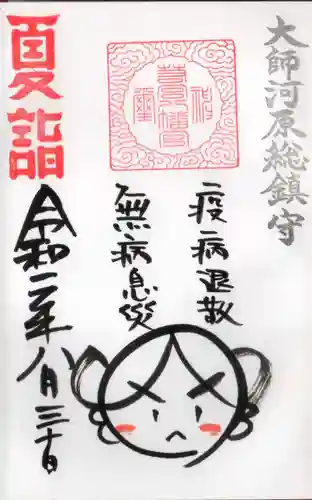 大師河原総鎮守
疫病退散
無病息災
夏詣
令和二年八月三十日